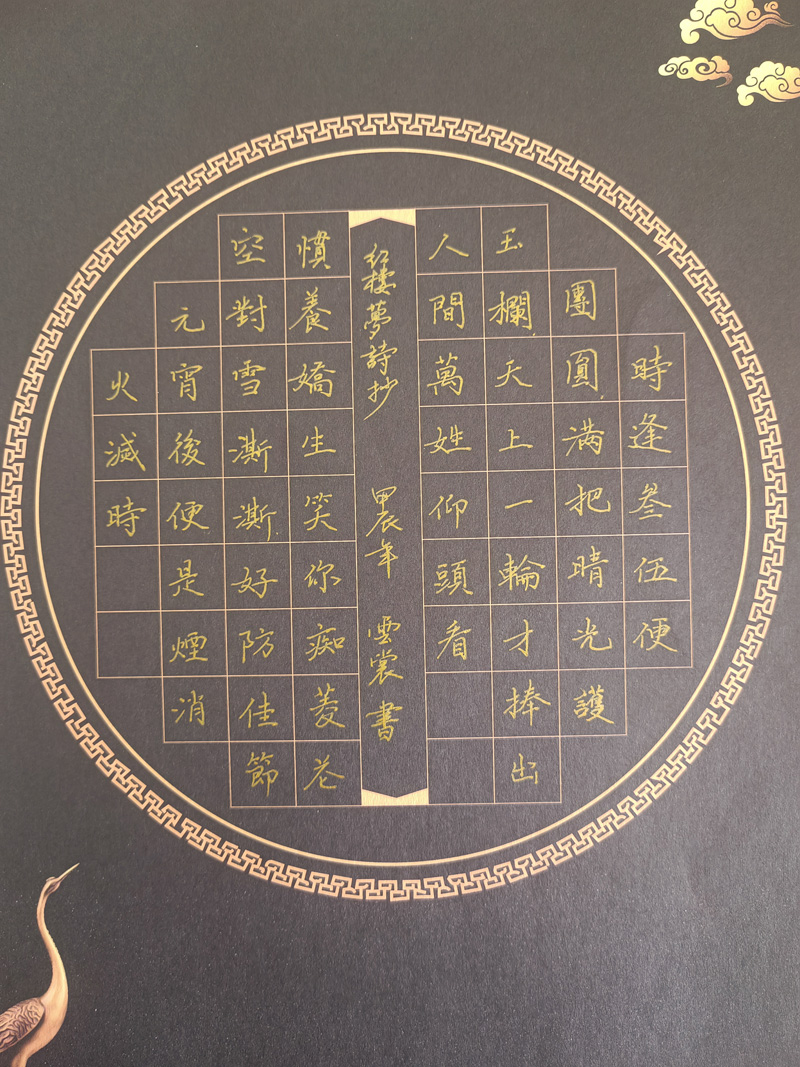 時逢叁伍便
團圓满把晴光護
玉欄天上一輪才捧出
人間萬姓仰頭看
紅樓夢詩抄 甲辰年 雲裳書
慣養嬌生笑你痴菱花
空對雪澌澌好防佳節
元宵後便是煙消
火滅時